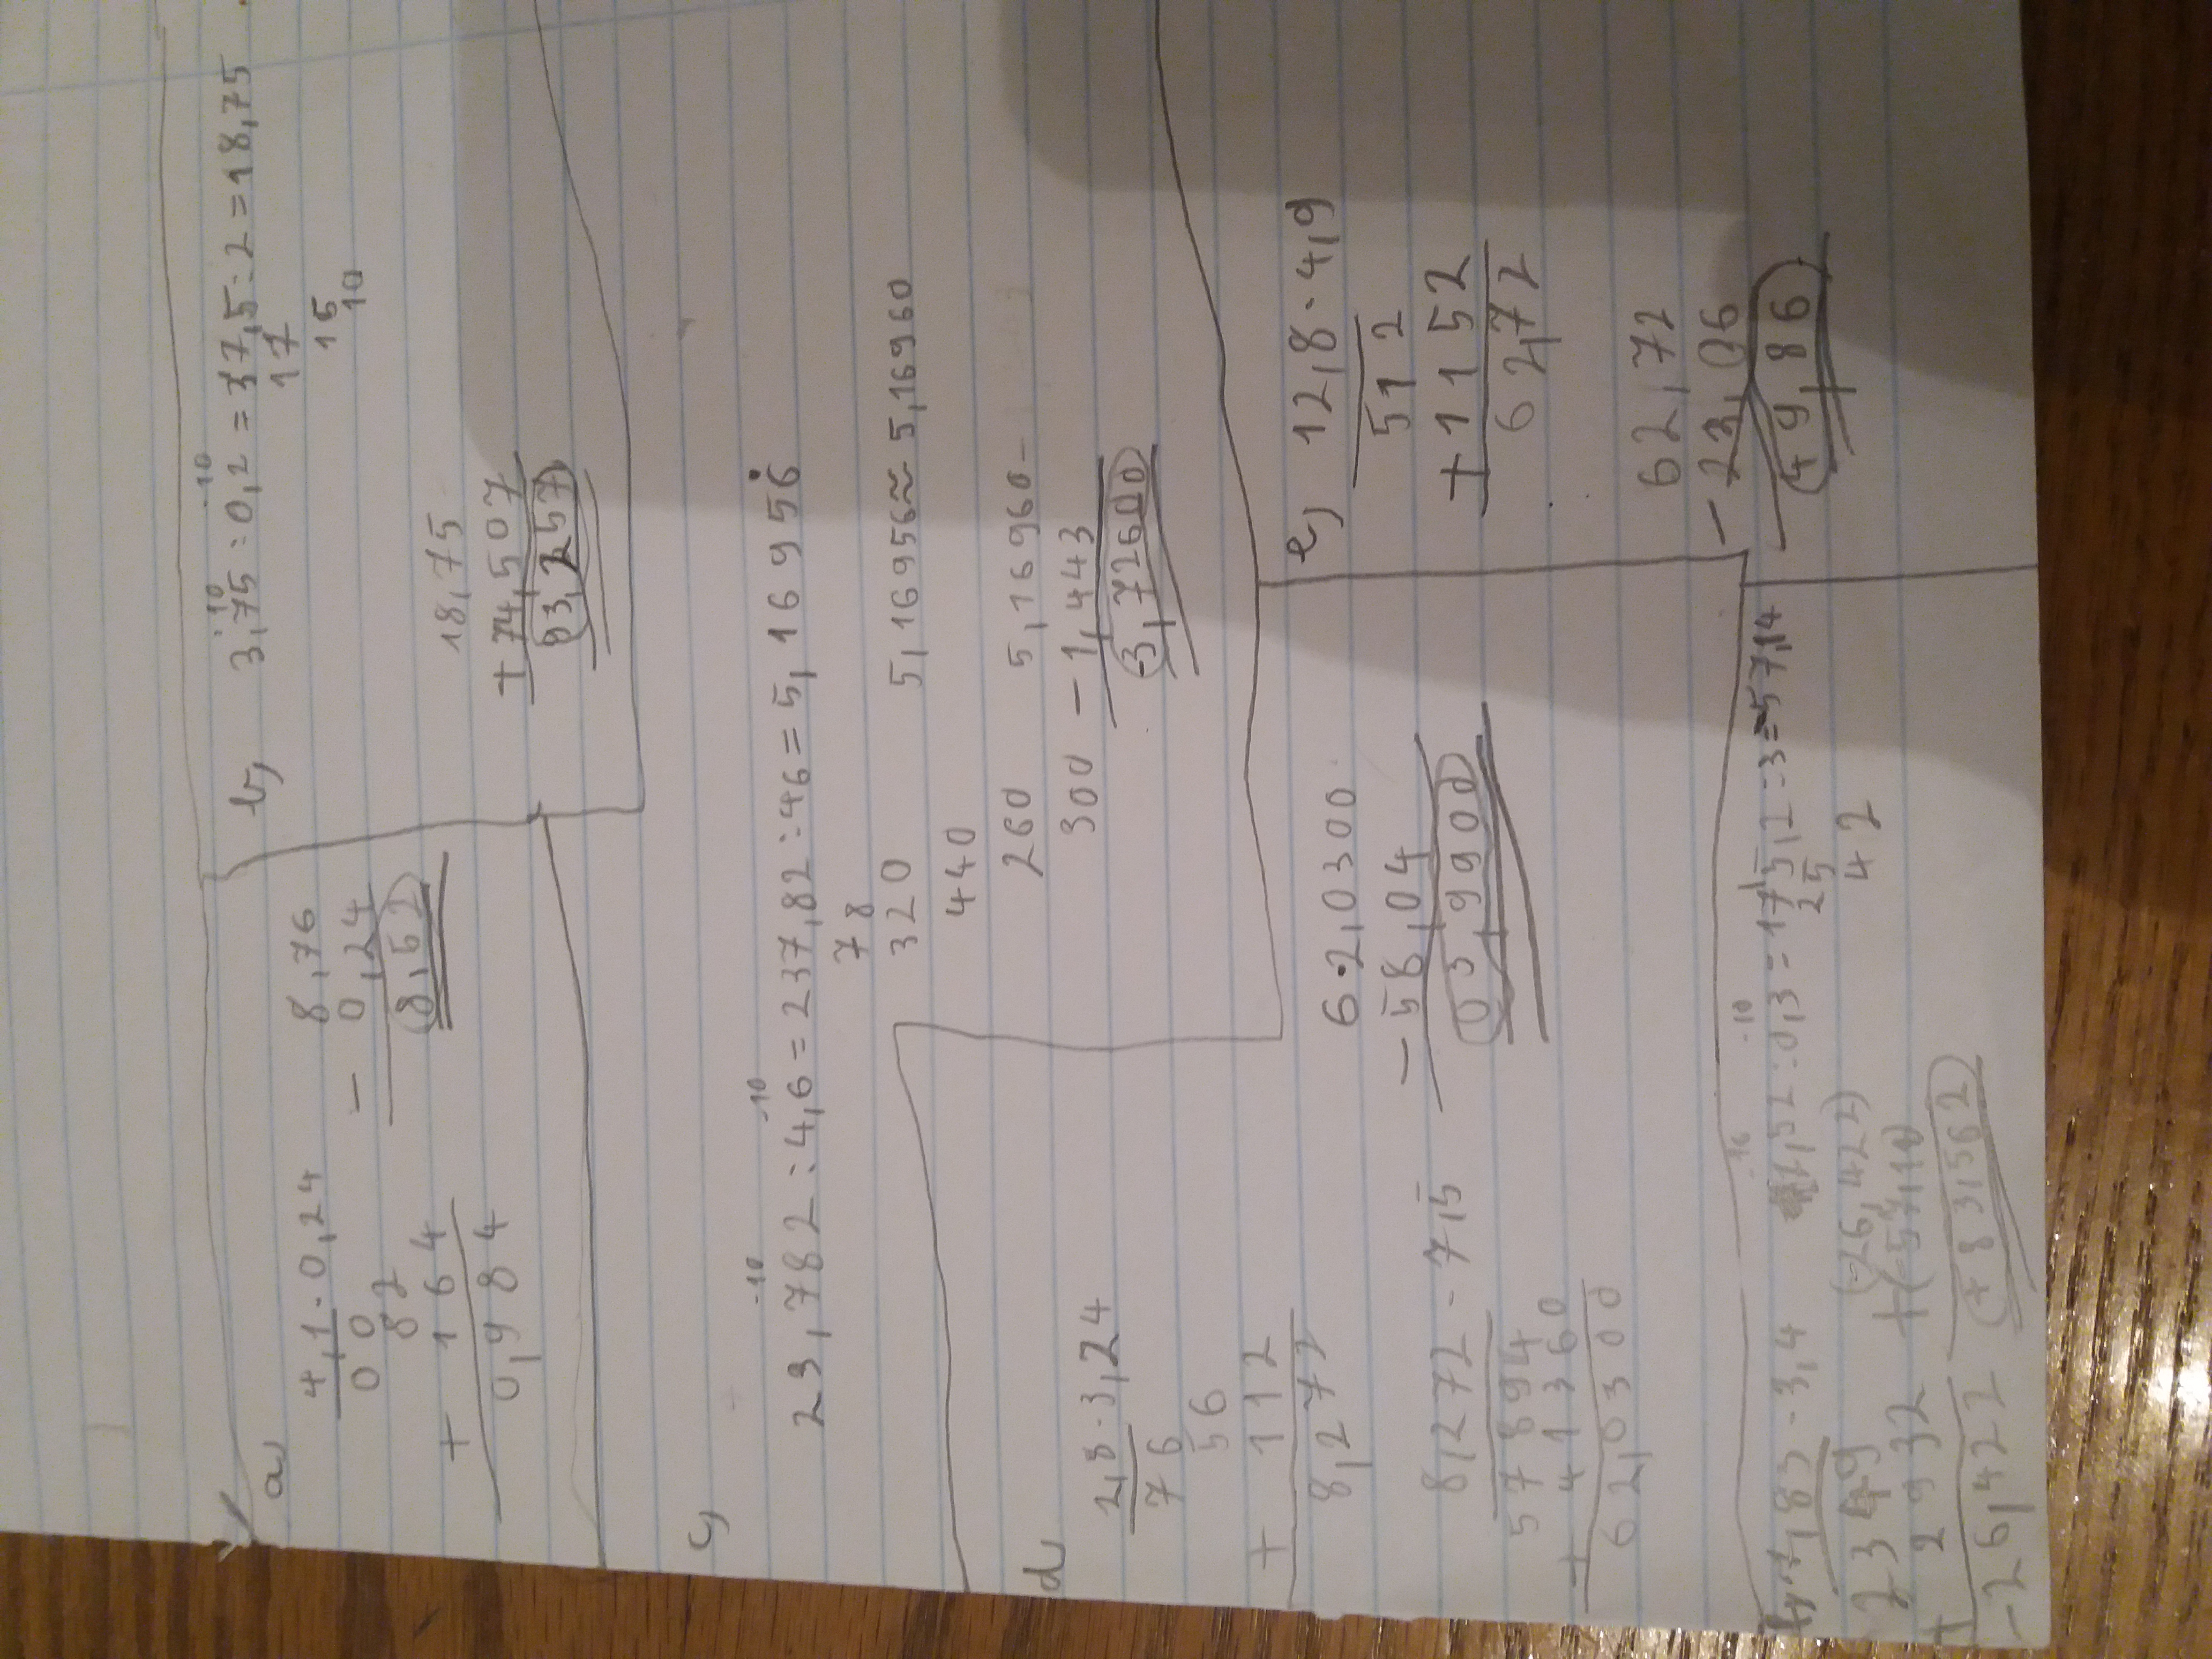 a)
4,1 · 0,24
00
82
+ 164
0,984
8,76
- 0,24
8,52
b)
·10 ·10
3,75 : 0,2 = 37,5 : 2 = 18,75
17
15
10
18,75
+ 74,507
93,257
c)
·10 ·10
23,782 : 4,6 = 237,82 : 46 = 5,16956
78
320
440
260
300
5,16956 ≈ 5,16960
5,16960-
- 1,443
3,72600
d)
2,8 · 3,24
76
56
+ 112
8,272
8,272 · 7,5
57894
+ 41360
62,0300
62,0300
- 58,04
03,9900
e)
12,8 · 4,9
512
+ 1152
62,72
62,72
- 23,06
49,86
,83 · 3,4
2349
+ 2932
-26,422
·10 ·10
,52 : 0,3 = 175,2 : 3 = 57,14
25
42
(-26,422)
+(-57,14)
(+83,562)